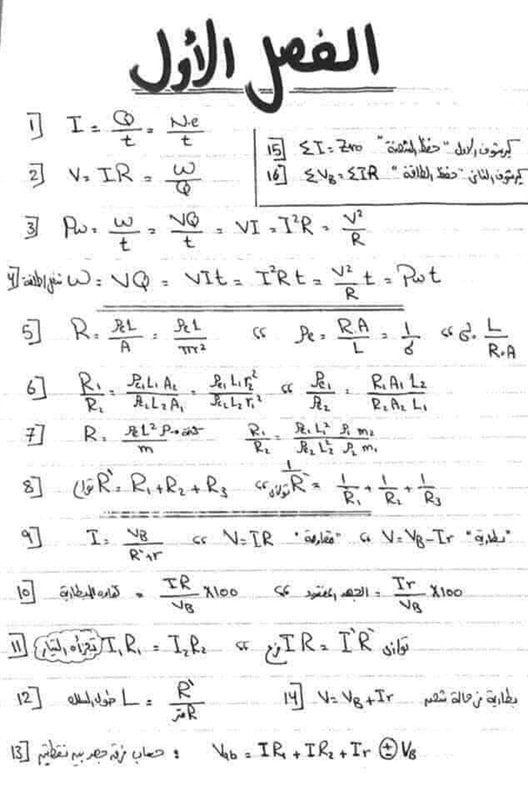 الفصل الأول
1] I = Q/t = N.e/t
15] ΣI = Zero "حفظ الشحنة" كيرشوف الاول
2] V = IR = W/Q
16] ΣV_B = ΣIR "حفظ الطاقة" كيرشوف الثاني
3] Pw = W/t = VQ/t = VI = I²R = V²/R
4] شغل / طاقة W = VQ = VIt = I²Rt = V²/R t = Pw t
5] R = ρe L/A = ρe L/πr² ،، ρe = R.A/L = 1/σ ،، σ = L/R.A
6] R₁/R₂ = ρe₁ L₁ A₂/ρe₂ L₂ A₁ = ρe₁ L₁ r₂²/ρe₂ L₂ r₁² ،، ρe₁/ρe₂ = R₁ A₁ L₂/R₂ A₂ L₁
7] R = ρe L² ρ → كثافة/m R₁/R₂ = ρe₁ L₁² ρ₁ m₂/ρe₂ L₂² ρ₂ m₁
8] توالي R` = R₁ + R₂ + R₃ ،، توازي 1/R` = 1/R₁ + 1/R₂ + 1/R₃
9] I = V_B/R`+r ،، V = IR "مقاومة" ،، V = V_B - Ir "بطارية"
10] كفاءة البطارية = IR/V_B ×100 ،، الجهد المفقود = Ir/V_B ×100
11] تجزأه التيار I₁R₁ = I₂R₂ ،، فرع IR = I`R` توازى
12] طول السلك L = R`/متر R
14] V = V_B + Ir بطارية فى حالة شحن
13] حساب فرق جهد بين نقطتين : V_ab = IR₁ + IR₂ + Ir ± V_B